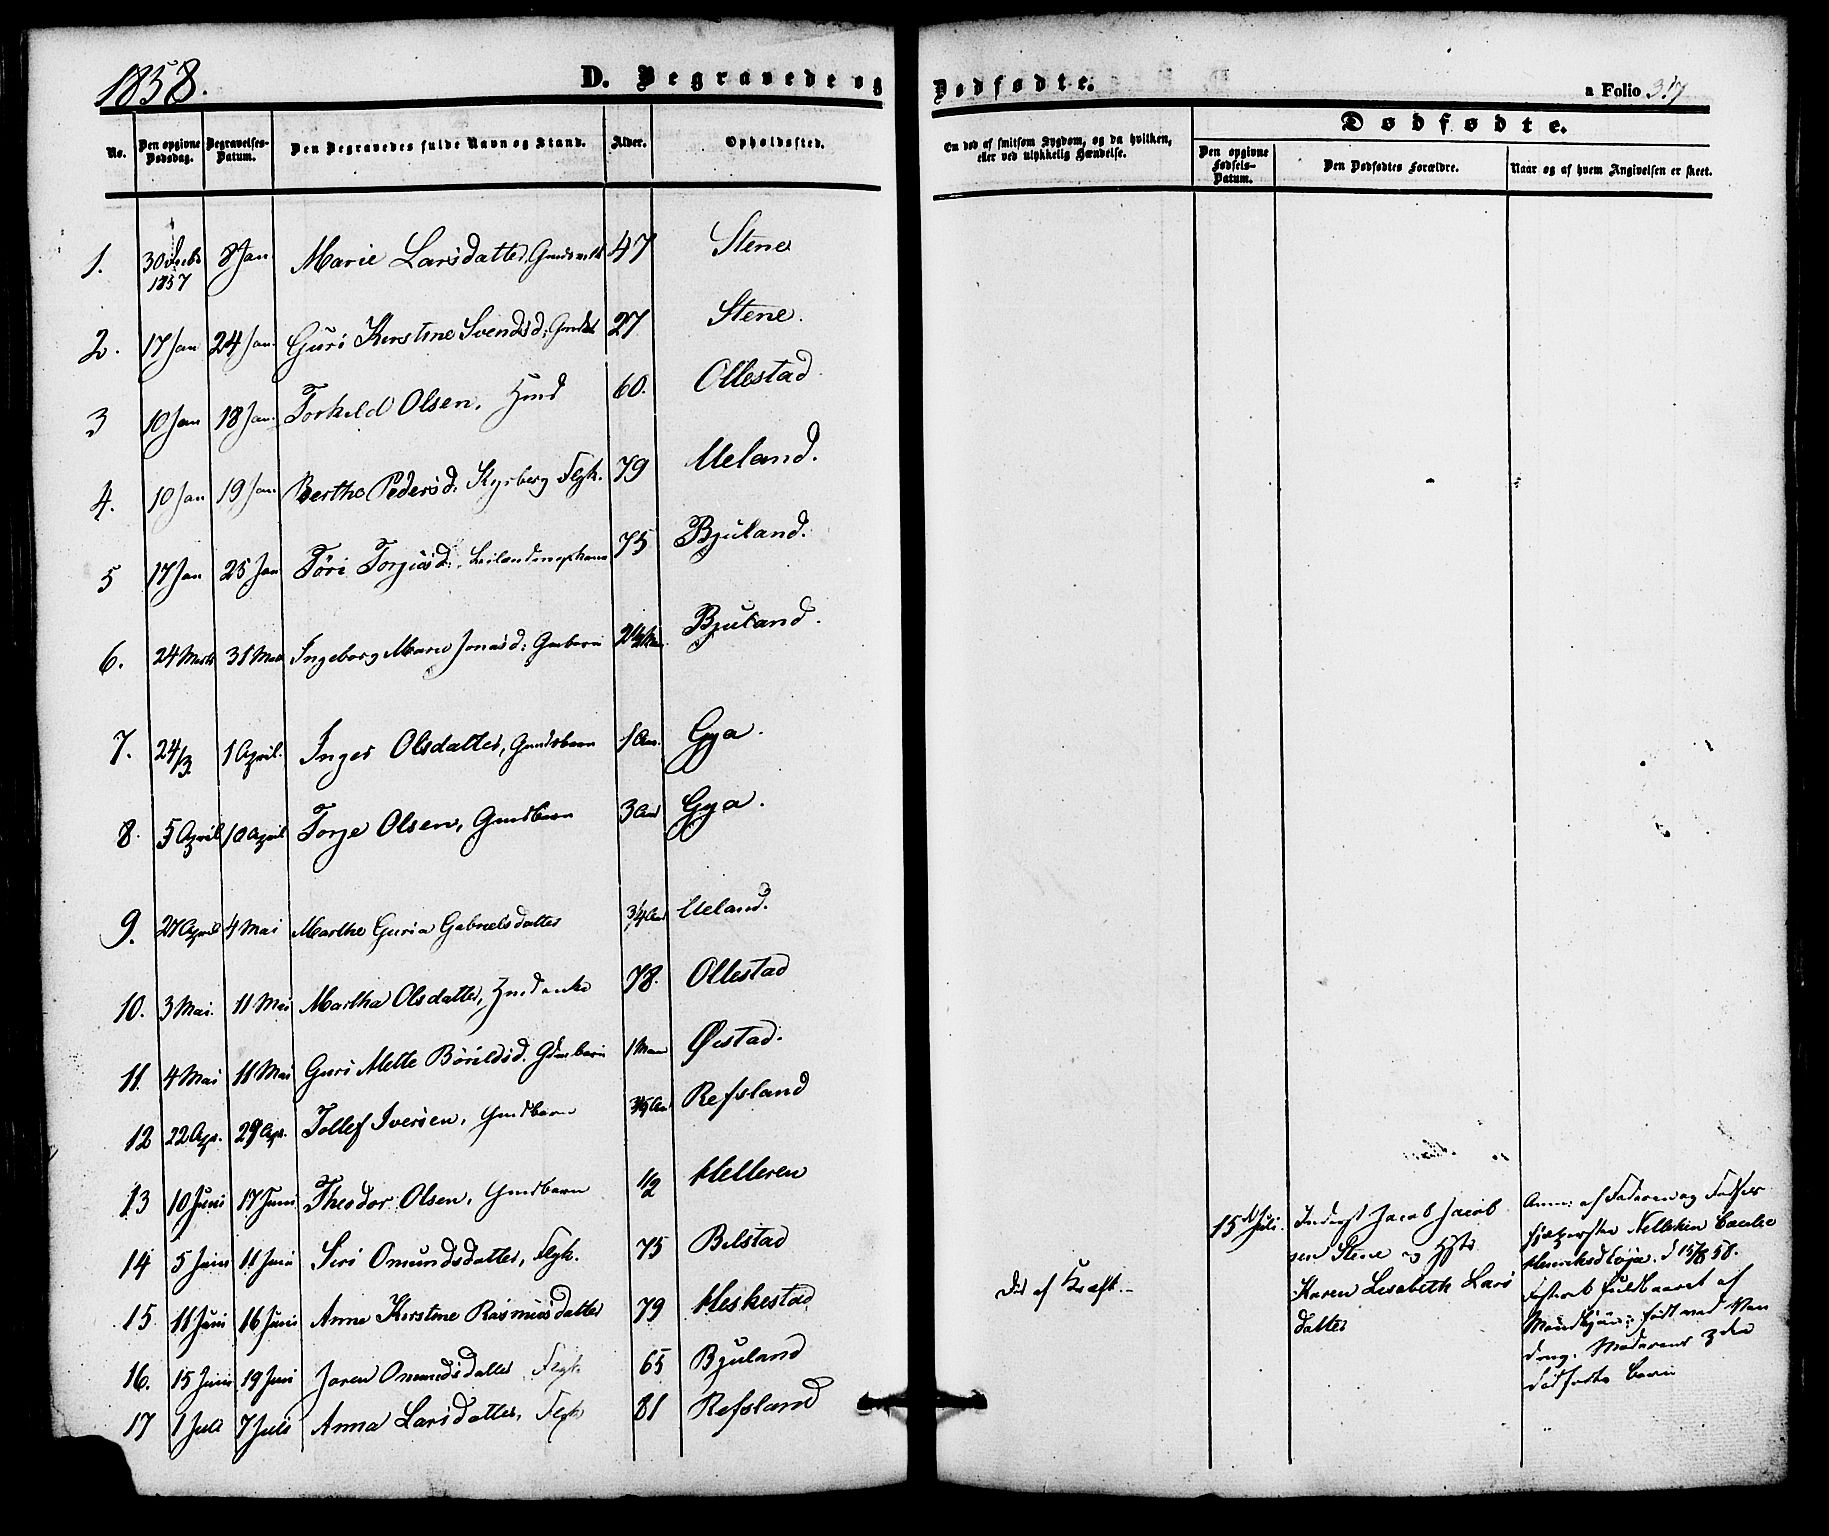 1858.
D. Begravede og
No.
Den opgivne Dødsdag.
Begravelses-Datum.
Den Begravedes fulde Navn og Stand.
Alder.
Opholdssted.
1. 30 Decbr 1857 8 Jan Marie Larsdatter, 47 Stene
2. 17 Jan 24 Jan. Guri Kirstine Svendsd: 27 Stene.
3 10 Jan 18 Jan. Torkild Olsen, 60. Ollestad
4. 10 Jan 19 Jan. Berthe Pedersd. Flgk. 79 Ueland.
5 17 Jan 25 Jan Töri Torgiösd. 75 Bjuland.
6. 24 Marts 31 Mar Ingeborg Marie Jonasd: Bjuland.
7. 24/3 1 April. Inger Olsdatter, Gmdsbarn 1 Aar. Gya.
8. 5 April 10 April Torje Olsen, Gmdbarn 3 Aar Gya.
9. 27 April 4 Mai Marthe Guria Gabrielsdatter 3/4 Aar Ueland.
10. 3 Mai. 11 Mai Martha Olsdatter, 78. Ollestad
11. 4 Mai 11 Mai Guri Mette 1 Maa Øestad.
12 22 Apr. 29 Apr. Tollef Iversen, Gmdbarn Refsland
13 10 Juni 17 Juni Theodor Olsen, Gmdbarn 1/2 Helleren
14 5 Juni 11 Juni Siri Omundsdatter, Flgk. 75 Bilstad
15. 11 Juni 16 Juni Anne Kirstine Rasmusdatter 79 Heskestad
16. 15 Juni 19 Juni Joren Omundsdatter Flgk 65 Bjuland
17 1 Juli 7 Juli Anna Larsdatter, Flgk 81 Refsland
Dødfødte.
a Folio 317
En død af smitsom Sygdom, og da hvilken,
eller ved ulykkelig Hændelse.
Dødfødte.
Den opgivne Fødsels-Datum.
Den Dødfødtes Forældre.
Naar og af hvem Angivelsen er skeet.
Død af Kræft.
15 Juli.
Inderst Jacob Jacob
sen Stene og Hstr
Karen Lisabeth Lars
datter
Anm: af Faderen og
Henriksd Eeja. d 15/8 58.
født med Van
Moderens 3die
dødfødte Barn